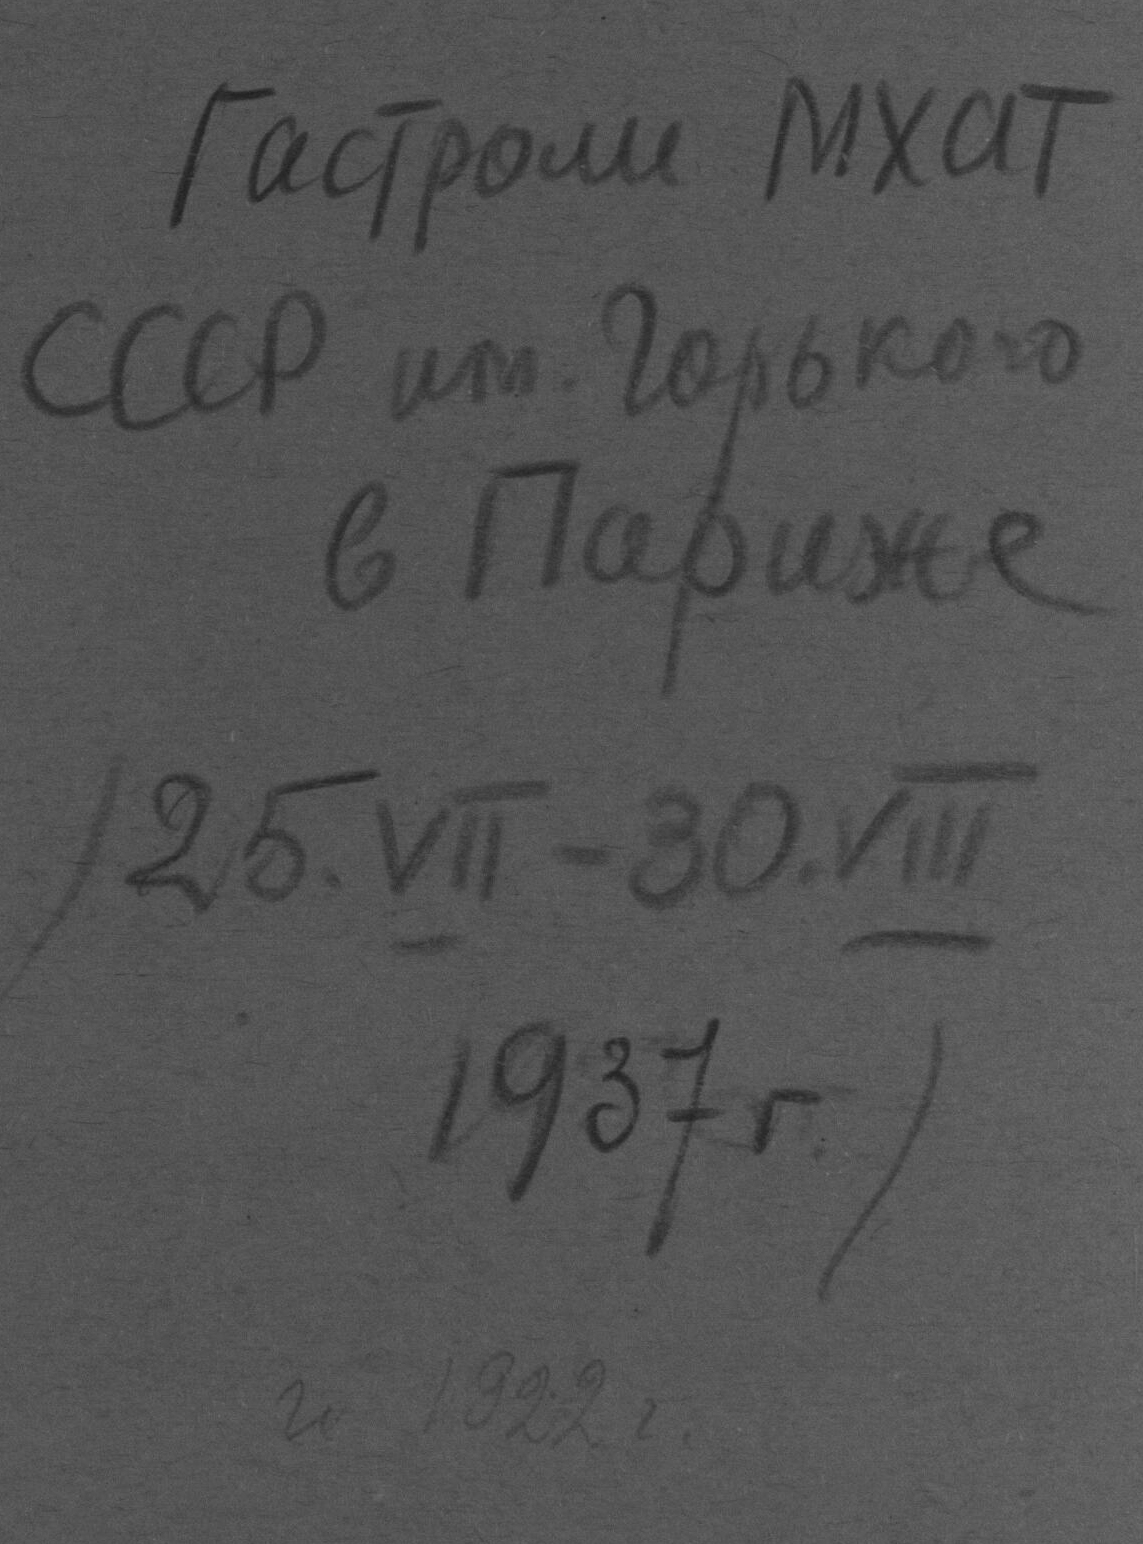 Гастроли МХАТ
СССР им. Горького
в Париже
/25.VII - 30.VIII
1937 г./
и 1922 г.